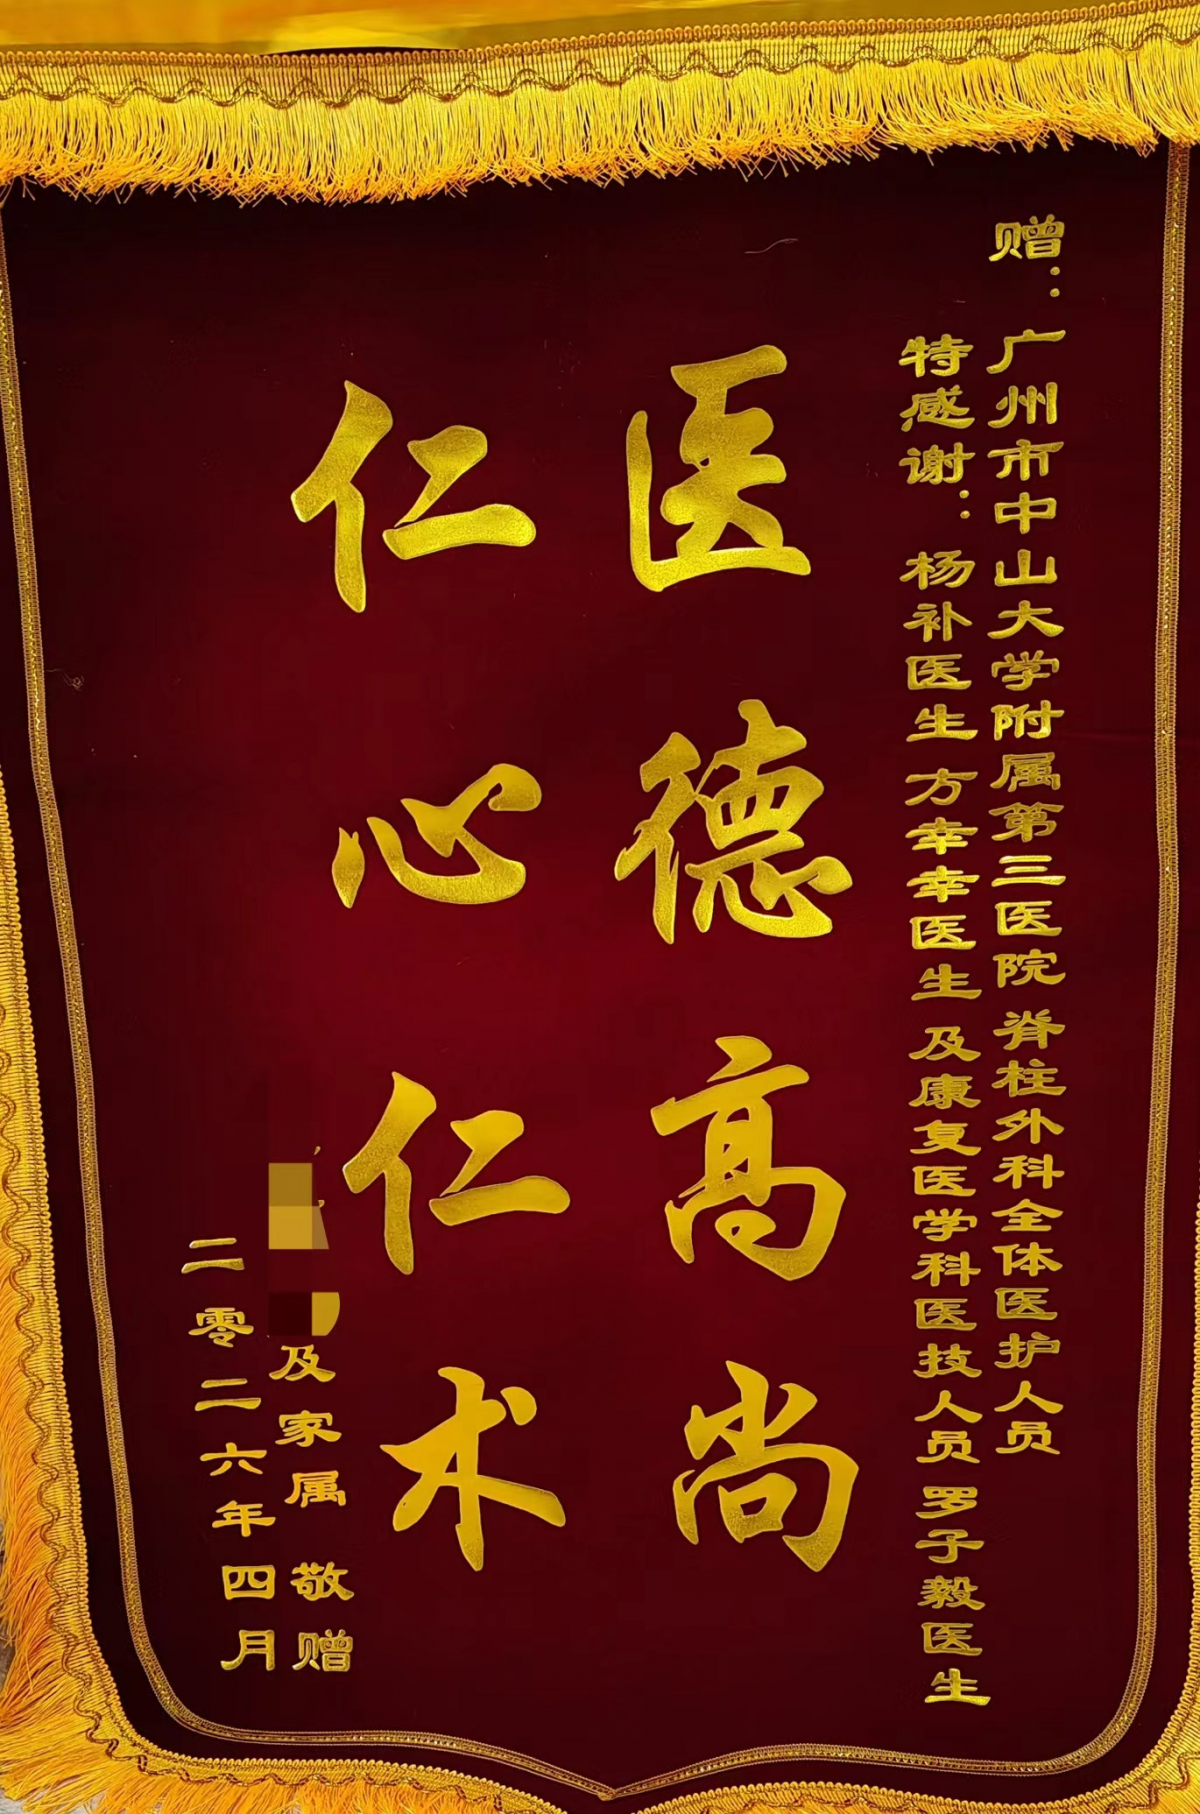 赠：广州市中山大学附属第三医院 脊柱外科全体医护人员
特感谢：杨补医生 方幸幸医生 及康复医学科医技人员 罗子毅医生
医德高尚
仁心仁术
及家属 敬赠
二零二六年四月